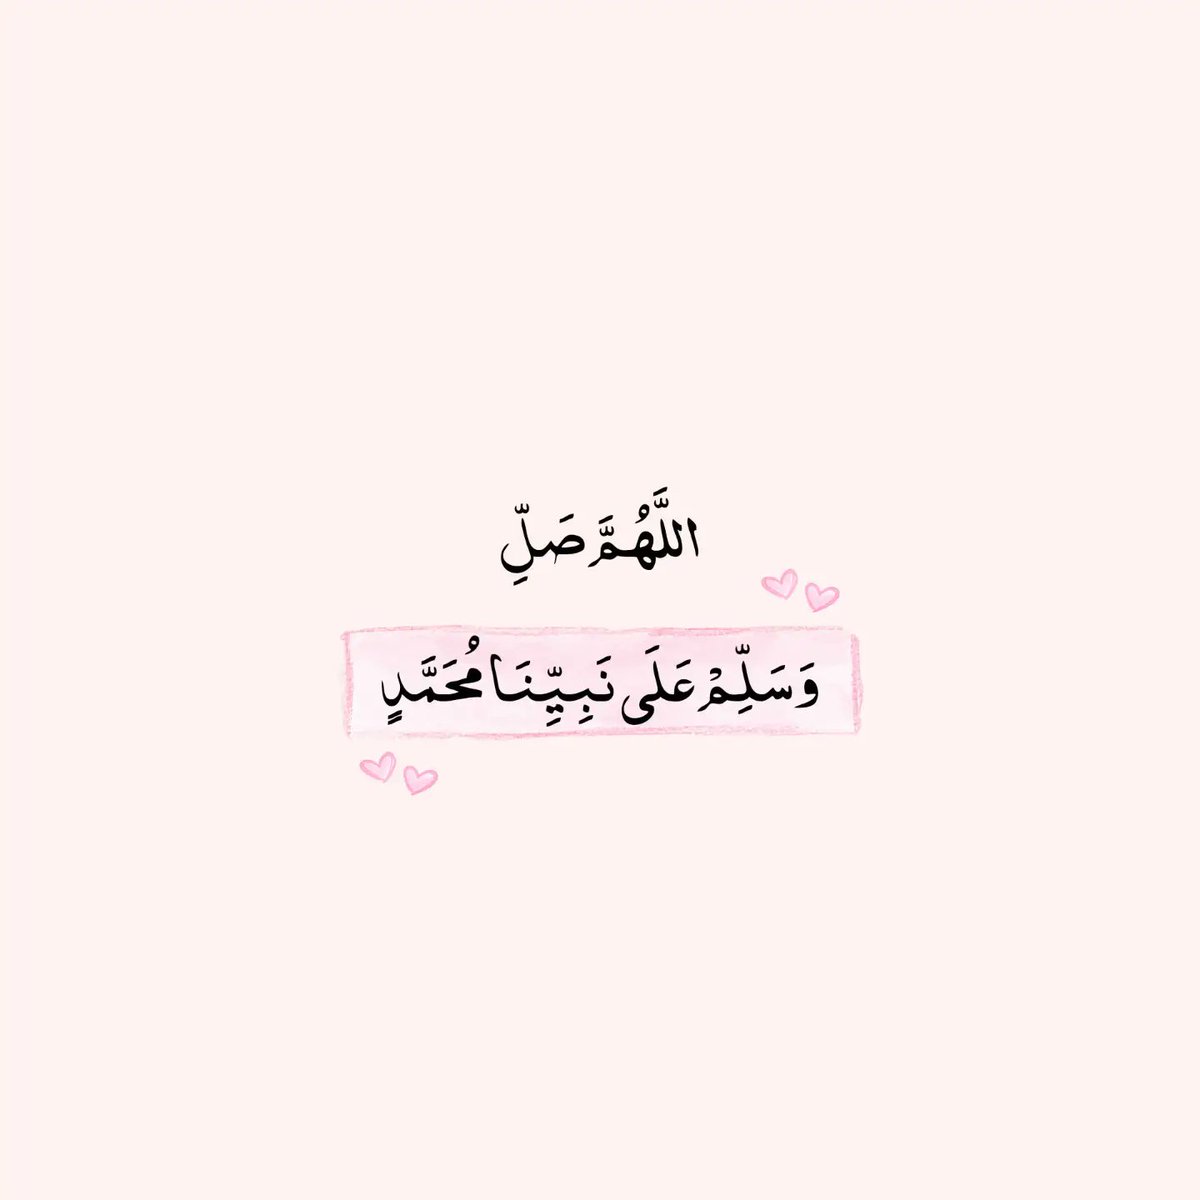 اللَّهُمَّ صَلِّ
وَسَلِّمْ عَلَى نَبِيِّنَا مُحَمَّدٍ